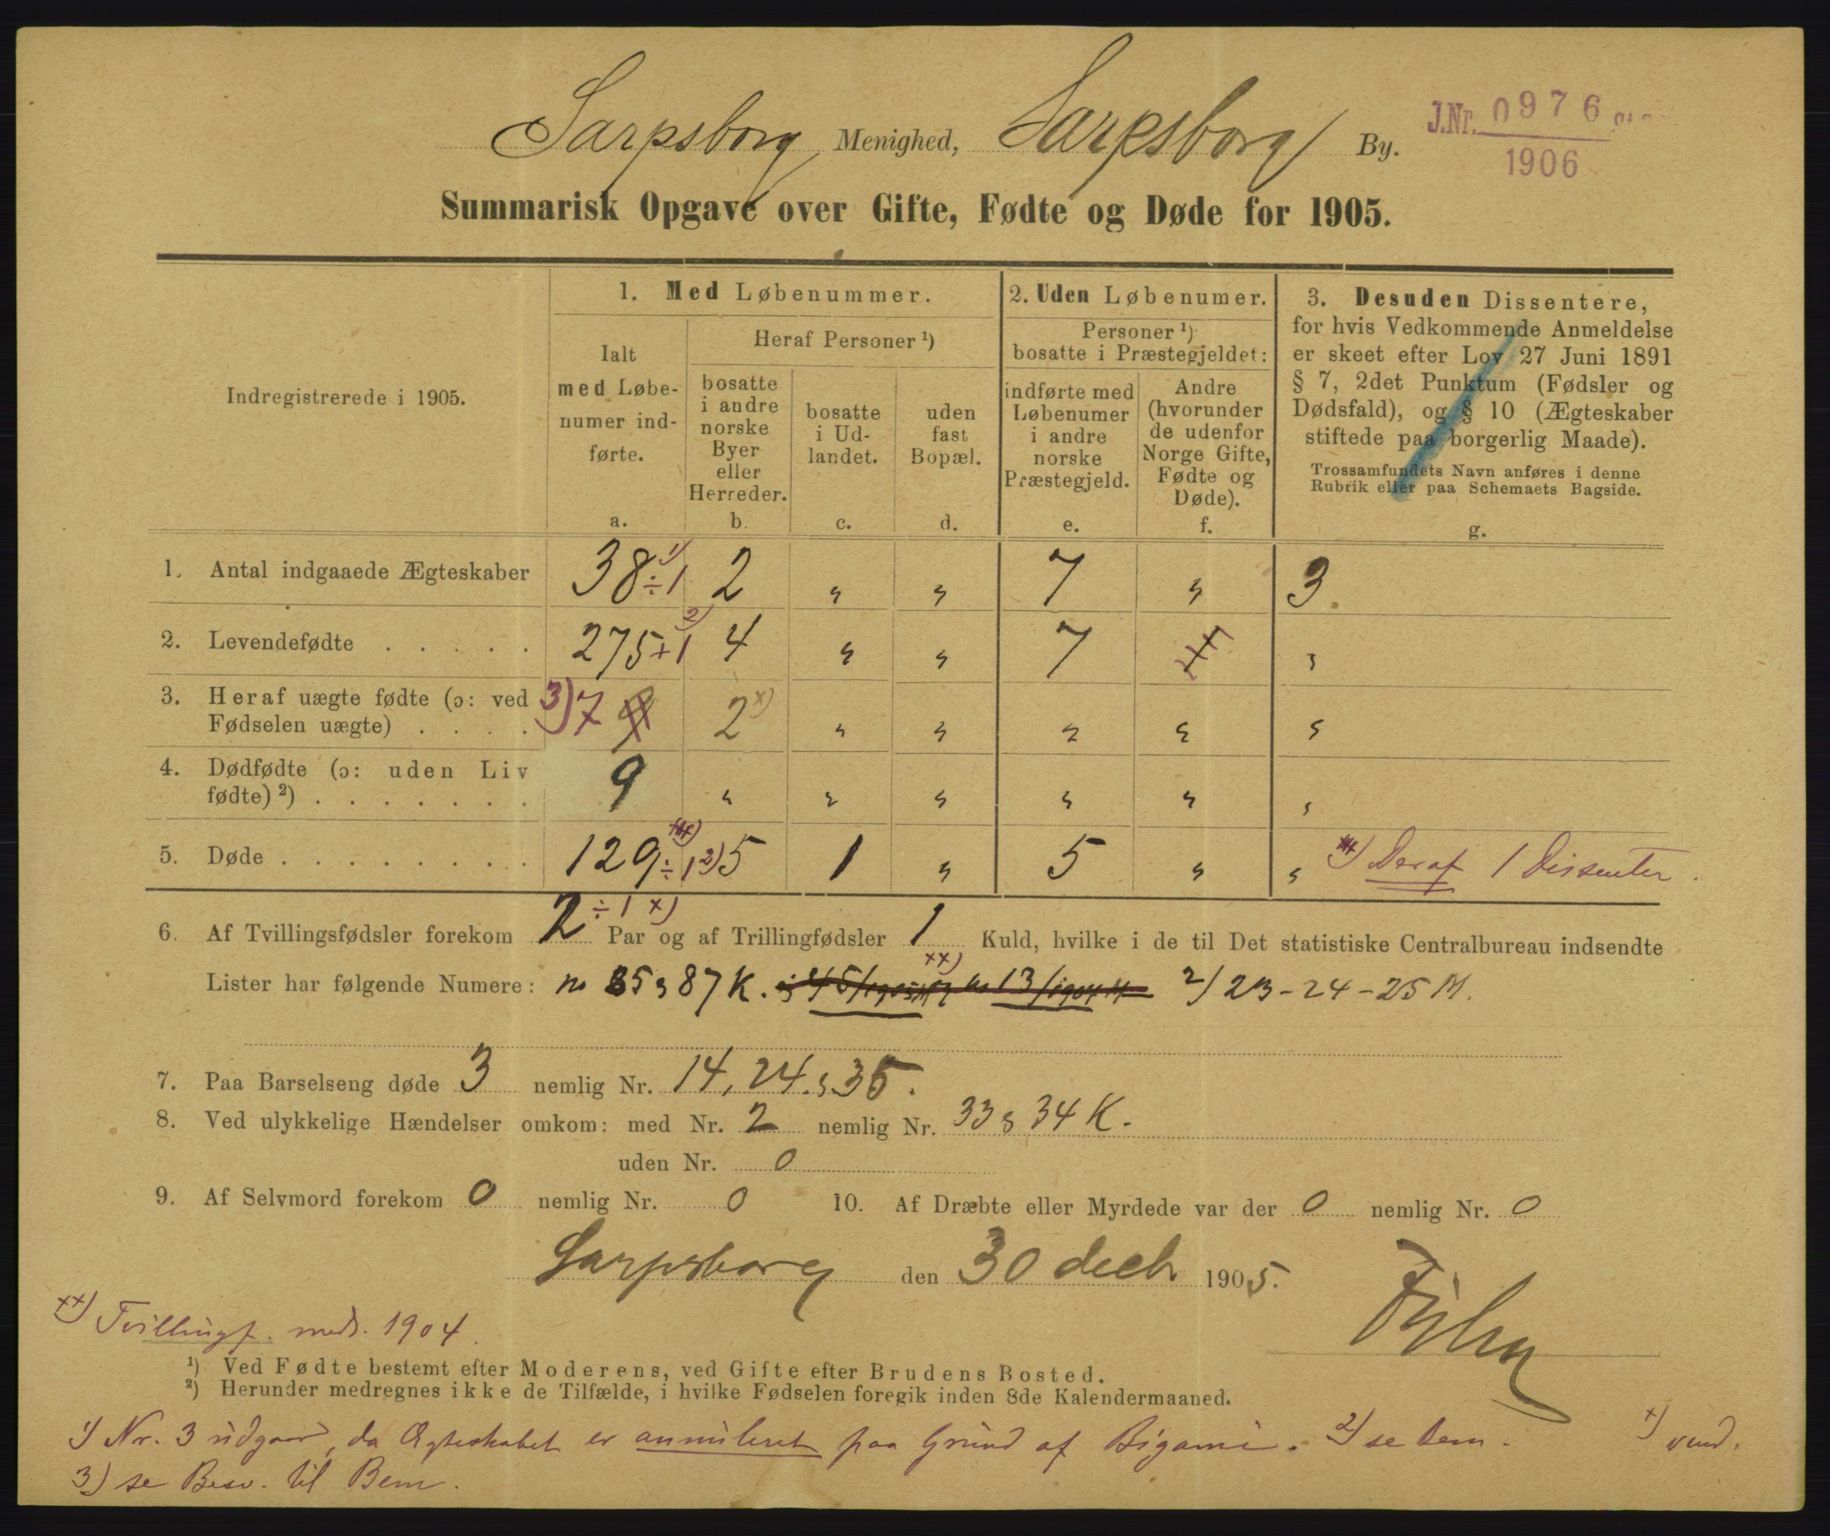 Sarpsborg Menighed, Sarpsborg By.
J.Nr. 0976
1906
Summarisk Opgave over Gifte, Fødte og Døde for 1905.
Indregistrerede i 1905.
1. Med Løbenummer.
Ialt
med Løbe-
numer ind-
førte.
a.
Heraf Personer ¹)
bosatte
i andre
norske
Byer
eller
Herreder.
b.
bosatte
i Ud-
landet.
c.
uden
fast
Bopæl.
d.
2. Uden Løbenumer.
Personer ¹)
bosatte i Præstegjeldet:
indførte med
Løbenumer
i andre
norske
Præstegjeld.
e.
Andre
(hvorunder
de udenfor
Norge Gifte,
Fødte og
Døde).
f.
3. Desuden Dissentere,
for hvis Vedkommende Anmeldelse
er skeet efter Lov 27 Juni 1891
§ 7, 2det Punktum (Fødsler og
Dødsfald), og § 10 (Ægteskaber
stiftede paa borgerlig Maade).
Trossamfundets Navn anføres i denne
Rubrik eller paa Schemaets Bagside.
g.
1. Antal indgaaede Ægteskaber 38 ÷1 ¹) 2 „ „ 7 „ 3.
2. Levendefødte . . . . . 275 +1 ²) 4 „ „ 7 „
3. Heraf uægte fødte (ɔ: ved
Fødselen uægte) . . . . 3) 7 2 x) „ „ „ „ „
4. Dødfødte (ɔ: uden Liv
fødte) ²) . . . . . . . 9 „ „ „ „ „ „
5. Døde . . . . . . . . 129 ÷1 2) 5 1 „ 5 „ „ Deraf 1 Dissenter.
6. Af Tvillingsfødsler forekom 2 ÷1 x) Par og af Trillingfødsler 1 Kuld, hvilke i de til Det statistiske Centralbureau indsendte
xx)
Lister har følgende Numere: no 85 87 K. 45/1905 13/1904 2/ 23-24-25 M.
7. Paa Barselseng døde 3 nemlig Nr. 14, 24. 35.
8. Ved ulykkelige Hændelser omkom: med Nr. 2 nemlig Nr. 33 34 K.
uden Nr. 0
9. Af Selvmord forekom 0 nemlig Nr. 0 10. Af Dræbte eller Myrdede var der 0 nemlig Nr. 0
Sarpsborg den 30 decb 1905.
xx) Tvillingf. meds. 1904.
¹) Ved Fødte bestemt efter Moderens, ved Gifte efter Brudens Bosted.
²) Herunder medregnes ikke de Tilfælde, i hvilke Fødselen foregik inden 8de Kalendermaaned.
1) Nr. 3 udgaar, da Ægteskabet er annuleret paa Grund af Bigami. 2) se Bem. x) vend.
3) se Besv. til Bem.